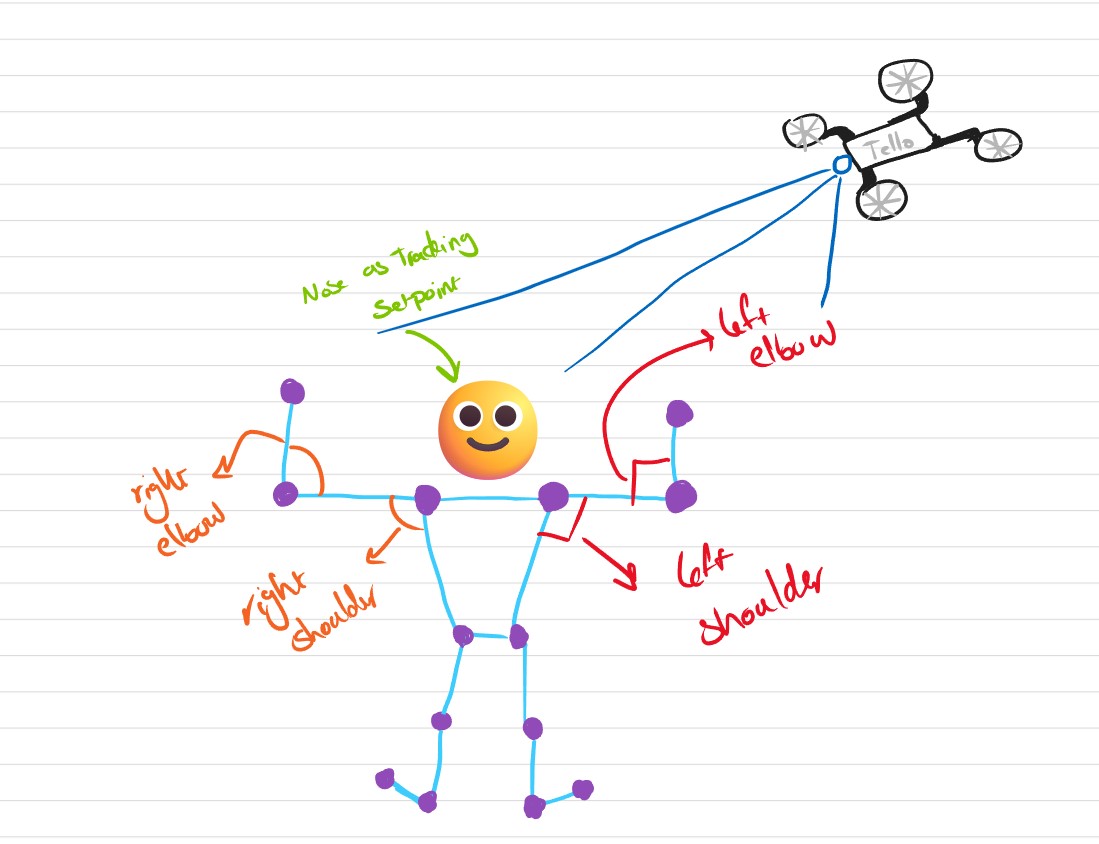 Tello
Nose as Tracking
Setpoint
left
elbow
right
elbow
right
shoulder
left
shoulder